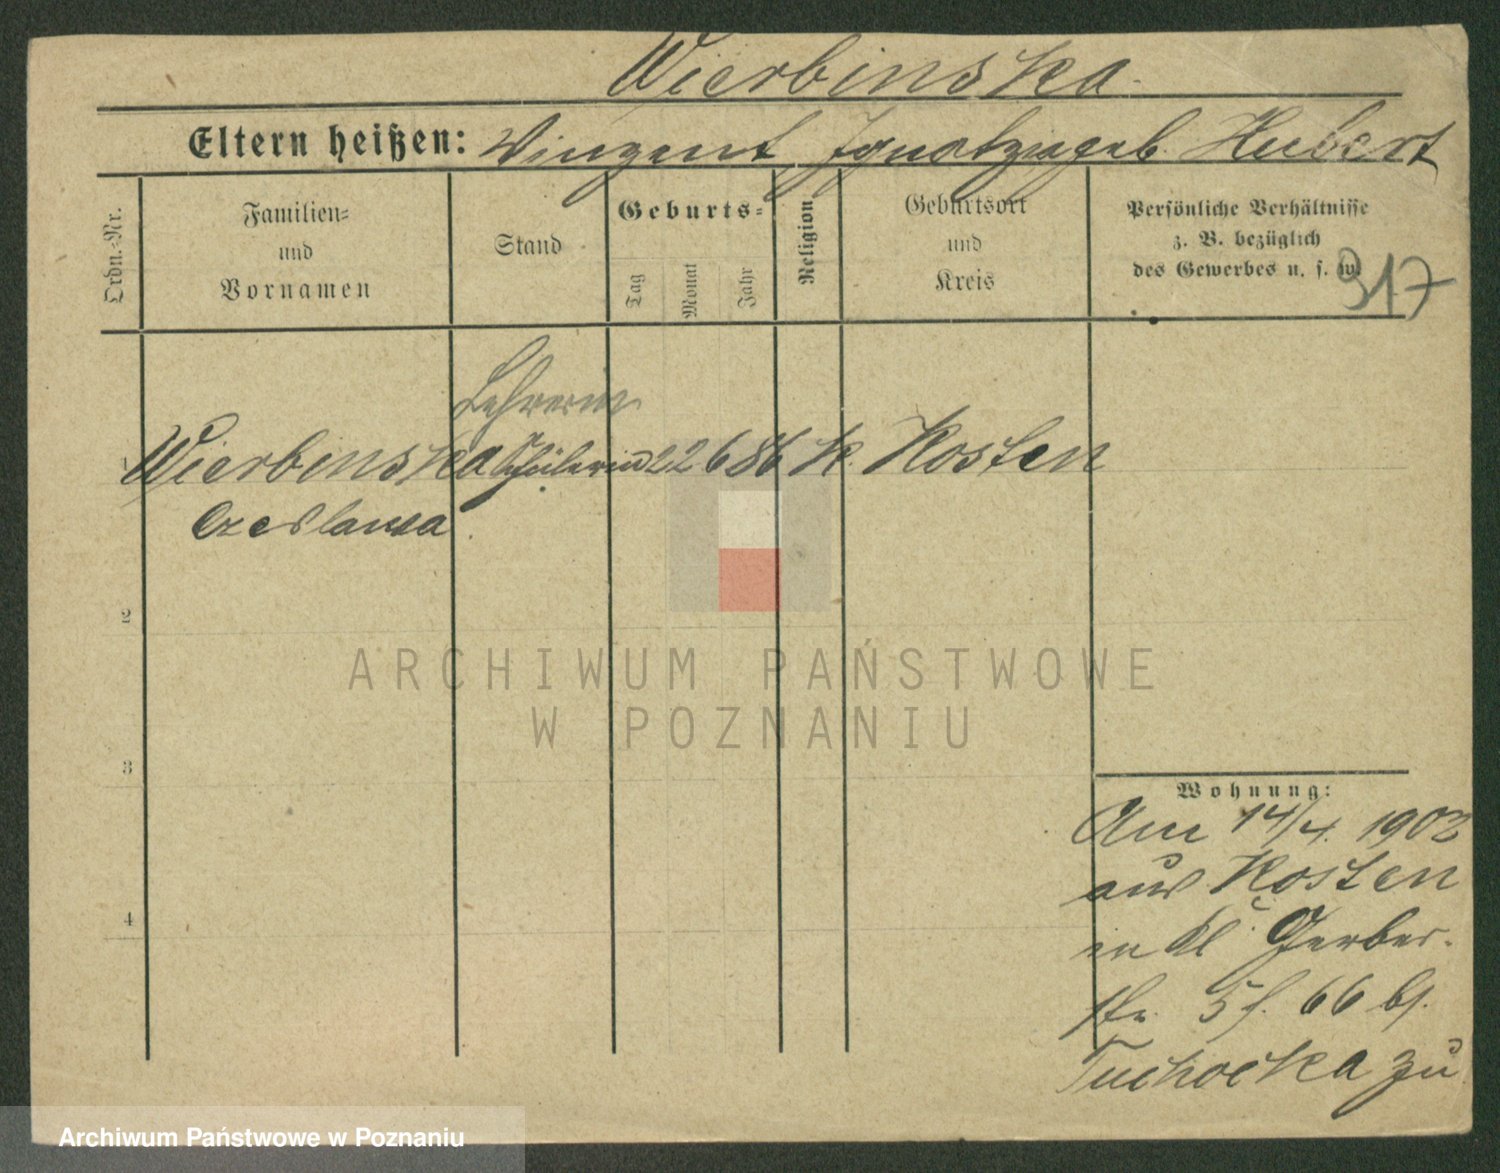 Wierbinska
Eltern heißen: Vinzent Ignatzia geb. Hubert
Ordn.-Nr.
Familien-
und
Vornamen
Stand
Geburts-
Tag
Monat
Jahr
Religion
Geburtsort
und
Kreis
Persönliche Verhältnisse
z. B. bezüglich
des Gewerbes u. s. w.
317
Lehrerin
1 Wierbinska Schülerin 22 6 86 k. Kosten
Czeslawa.
2
3
4
Wohnung:
Am 14/4. 1902
aus Kosten
in Kl. Gerber-
str. 5 66 bj.
Tuchocka zu
ARCHIWUM PAŃSTWOWE
W POZNANIU
Archiwum Państwowe w Poznaniu